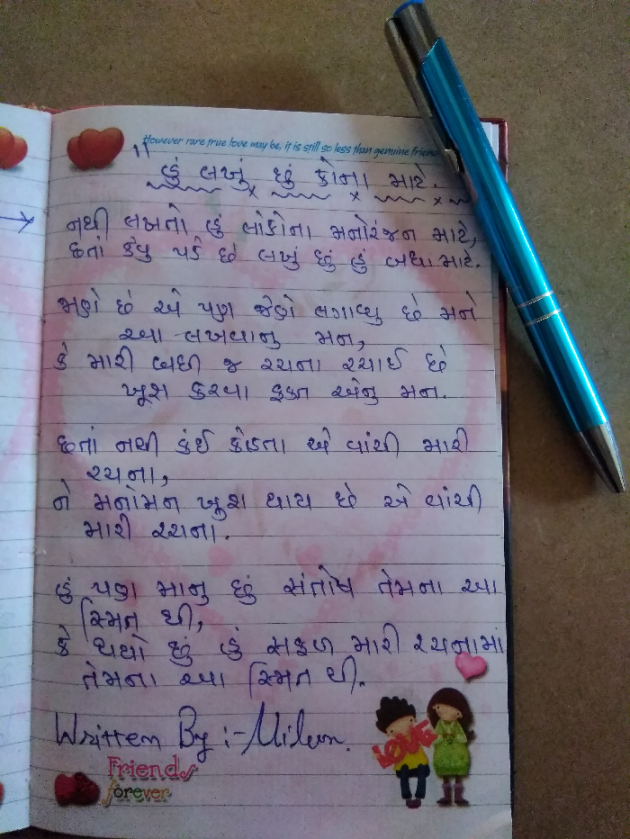 However rare true love may be, it is still so less than genuine friend
" હું લખું છું કોના માટે.
નથી લખતો હું લોકોના મનોરંજન માટે,
છતાં કેવુ પડે છે લખું છું હું બધા માટે.
જાણે છે એ પણ જેણે લગાવ્યુ છે મને
આ લખવાનુ મન,
કે મારી બધી જ રચના રચાઈ છે
ખૂશ કરવા ફક્ત એનુ મન.
છતાં નથી કંઈ કહેતા એ વાંચી મારી
રચના,
ને મનોમન ખુશ થાય છે એ વાંચી
મારી રચના.
હું પણ માનુ છું સંતોષ તેમના આ
સ્મિત થી,
કે થયો છું હું સફળ મારી રચનામાં
તેમના આ સ્મિત થી.
Written By :- Milan.
LOVE
Friends
forever